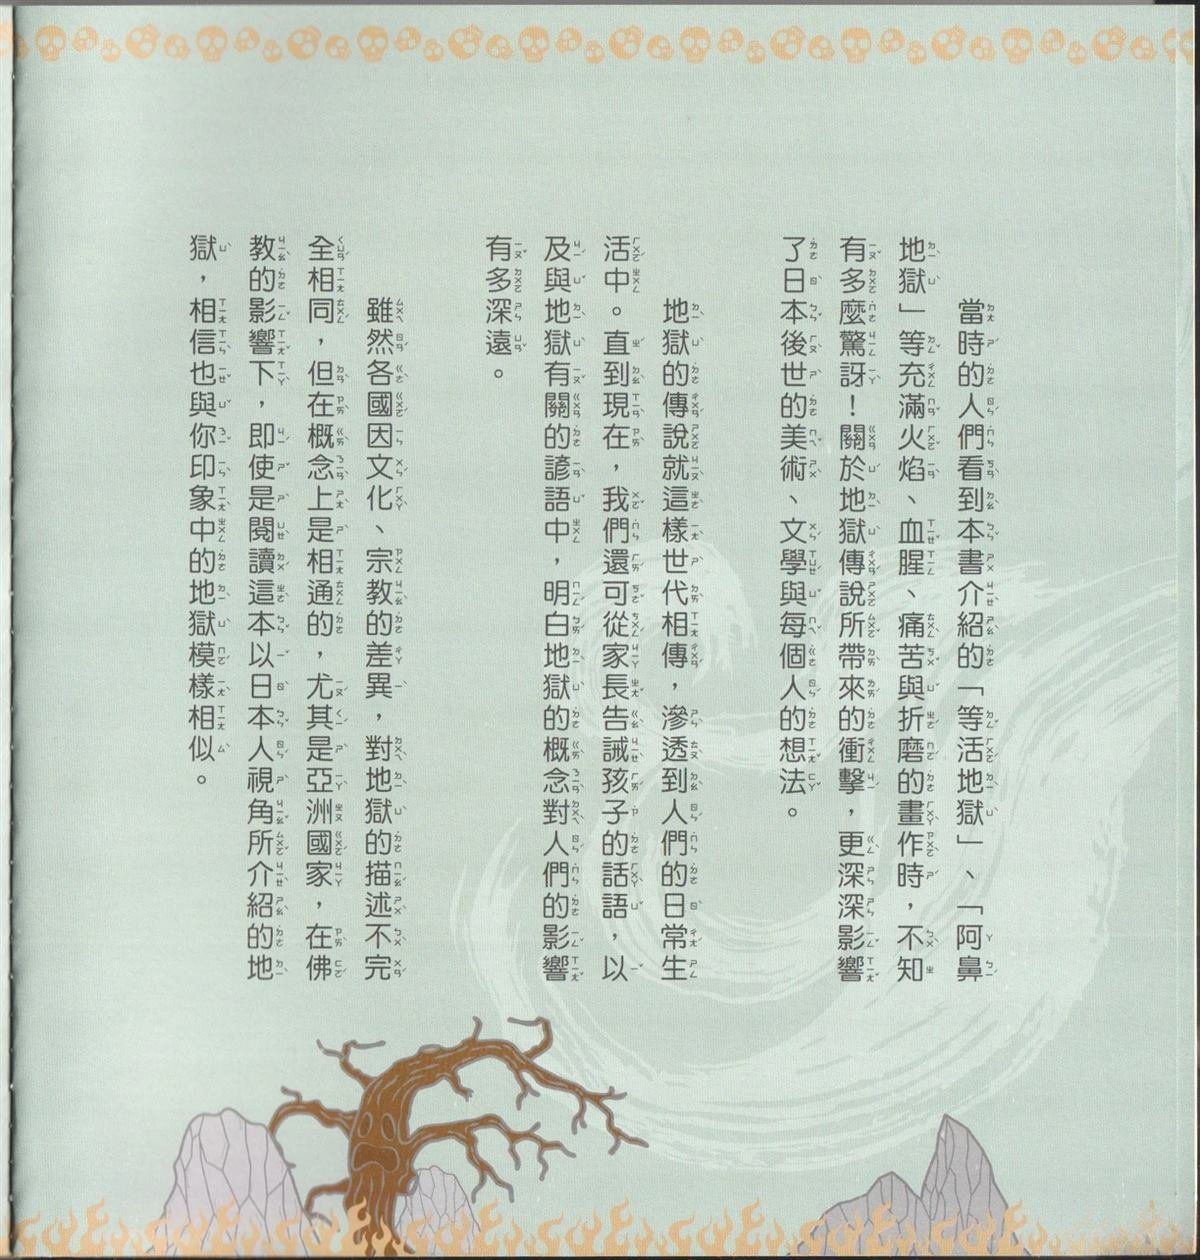 當時的人們看到本書介紹的「等活地獄」、「阿鼻
地獄」等充滿火焰、血腥、痛苦與折磨的畫作時，不知
有多麼驚訝！關於地獄傳說所帶來的衝擊，更深深影響
了日本後世的美術、文學與每個人的想法。
地獄的傳說就這樣世代相傳，滲透到人們的日常生
活中。直到現在，我們還可從家長告誡孩子的話語，以
及與地獄有關的諺語中，明白地獄的概念對人們的影響
有多深遠。
雖然各國因文化、宗教的差異，對地獄的描述不完
全相同，但在概念上是相通的，尤其是亞洲國家，在佛
教的影響下，即使是閱讀這本以日本人視角所介紹的地
獄，相信也與你印象中的地獄模樣相似。